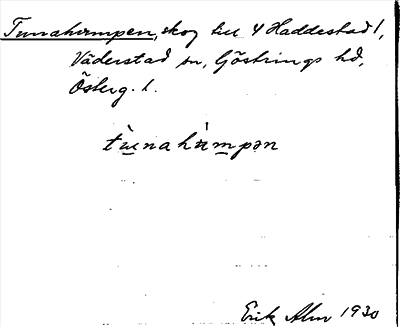 Tunahampen, skog till 4 Haddestad 1,
Väderstad sn, Göstrings hd,
Österg. l.
tu̲naham̲pən
Erik Alm 1930